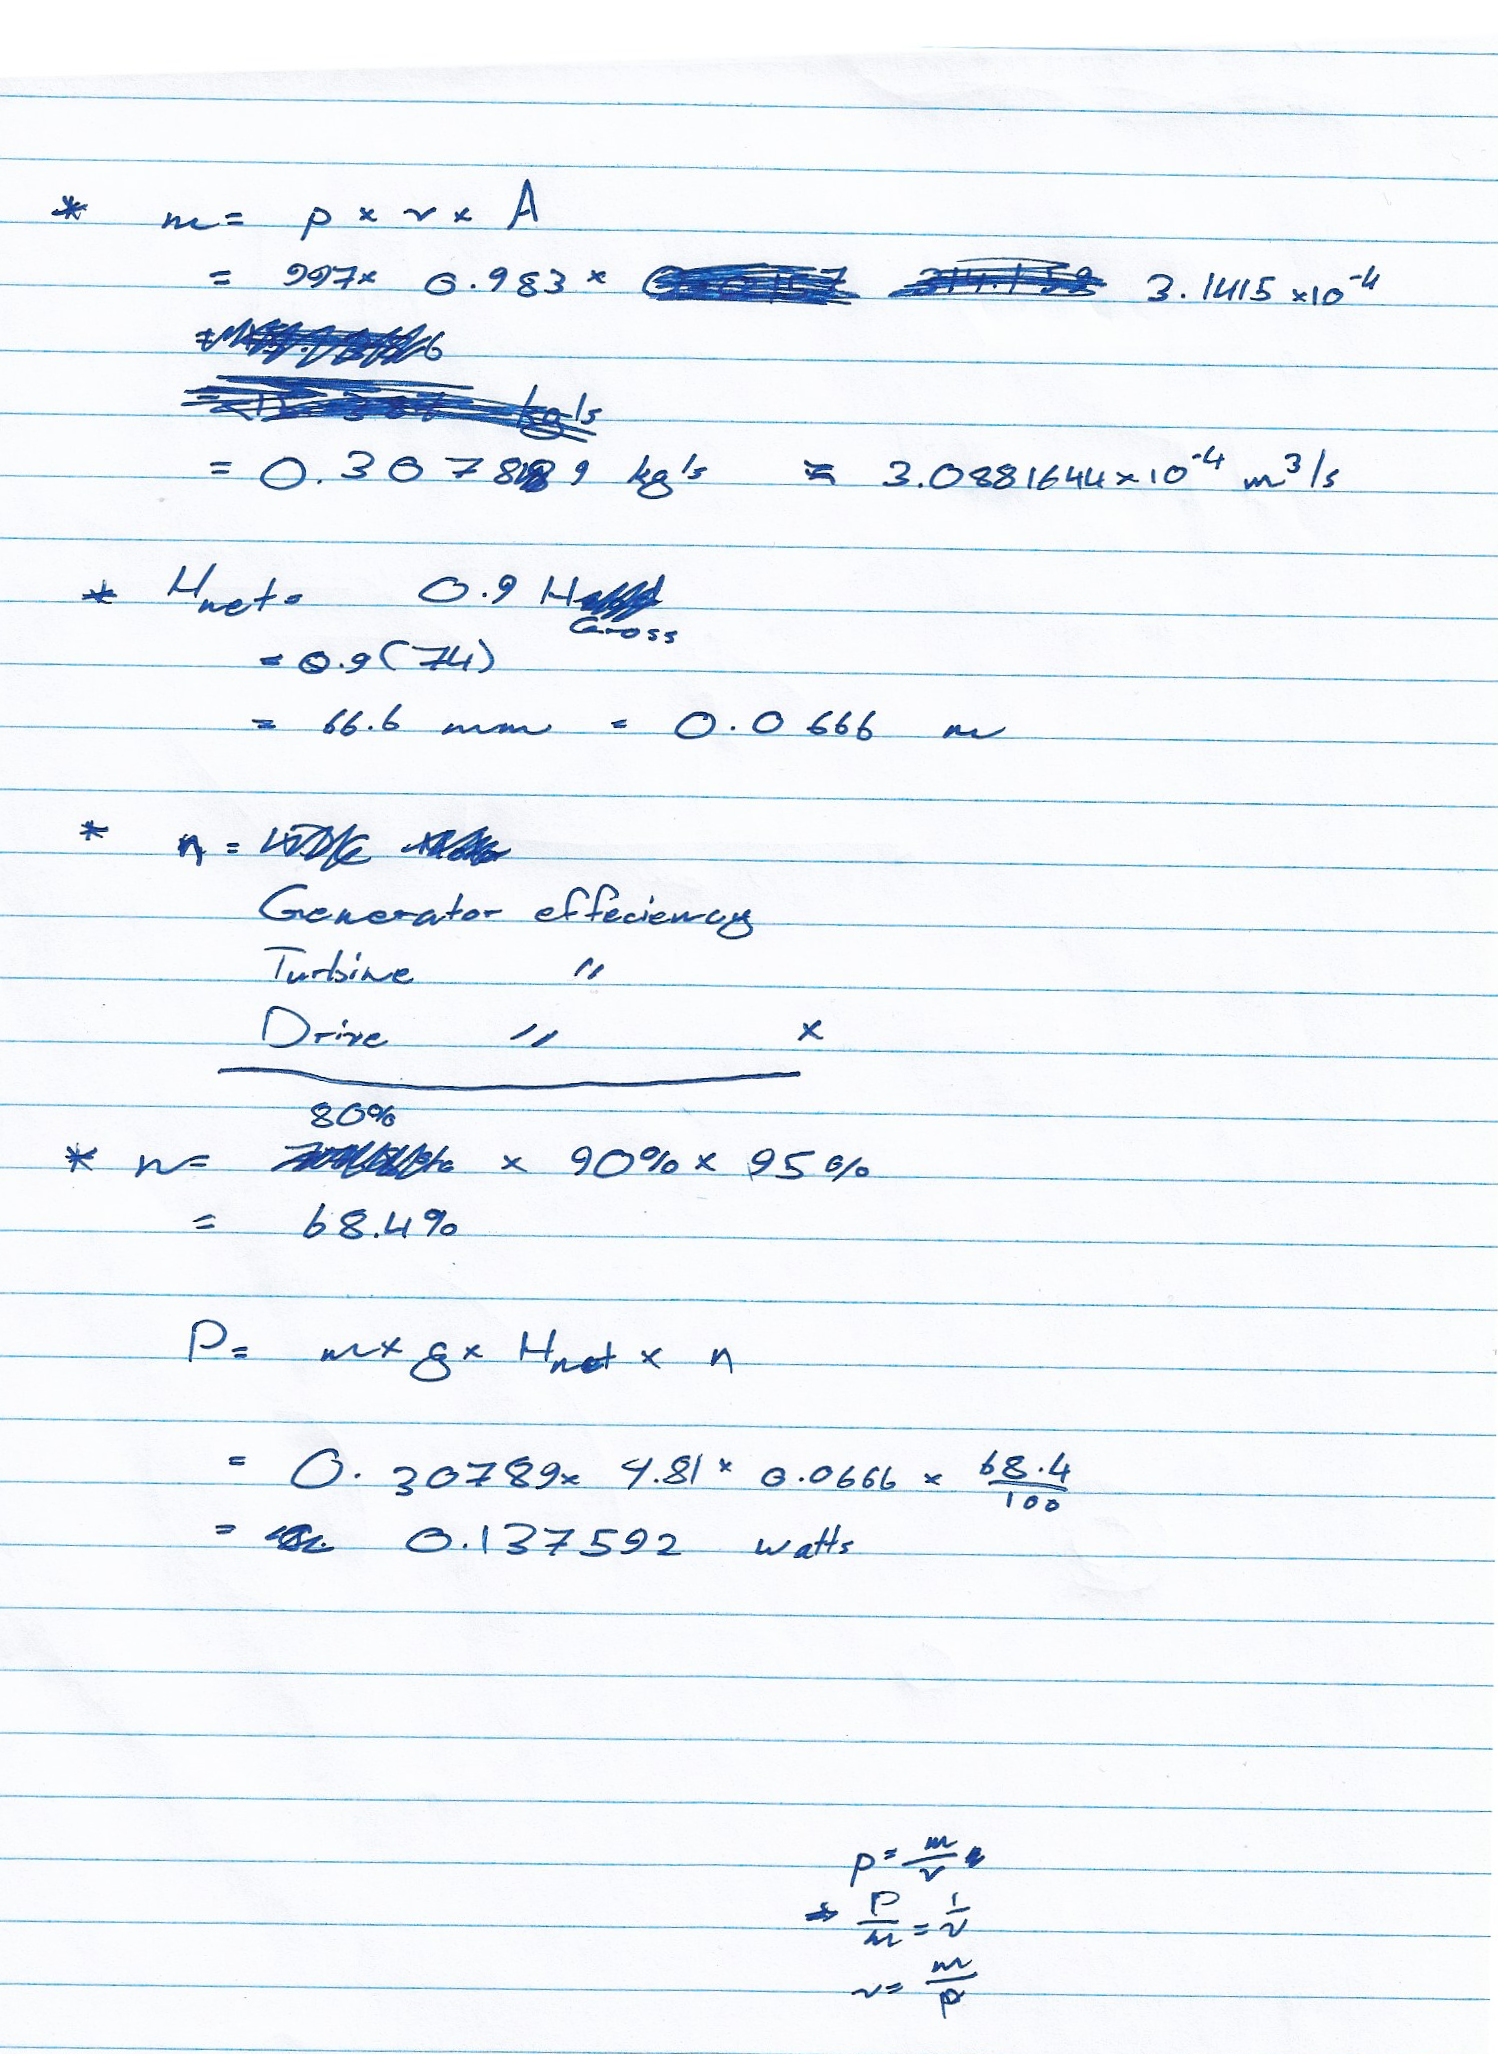 * m = p × v × A
= 997 × 0.983 × 3.1415 × 10^-4
= 0.307889 kg/s = 3.0881644 × 10^-4 m^3/s
* Hnet = 0.9 H Gross
= 0.9 (74)
= 66.6 mm = 0.0666 m
* n =
Generator effeciency
Turbine "
Drive " ×
80%
* n = × 90% × 95%
= 68.4%
P = m × g × Hnet × n
= 0.30789 × 9.81 × 0.0666 × 68.4/100
= 0.137592 watts
p = m/v
⇒ p/m = 1/v
v = m/p